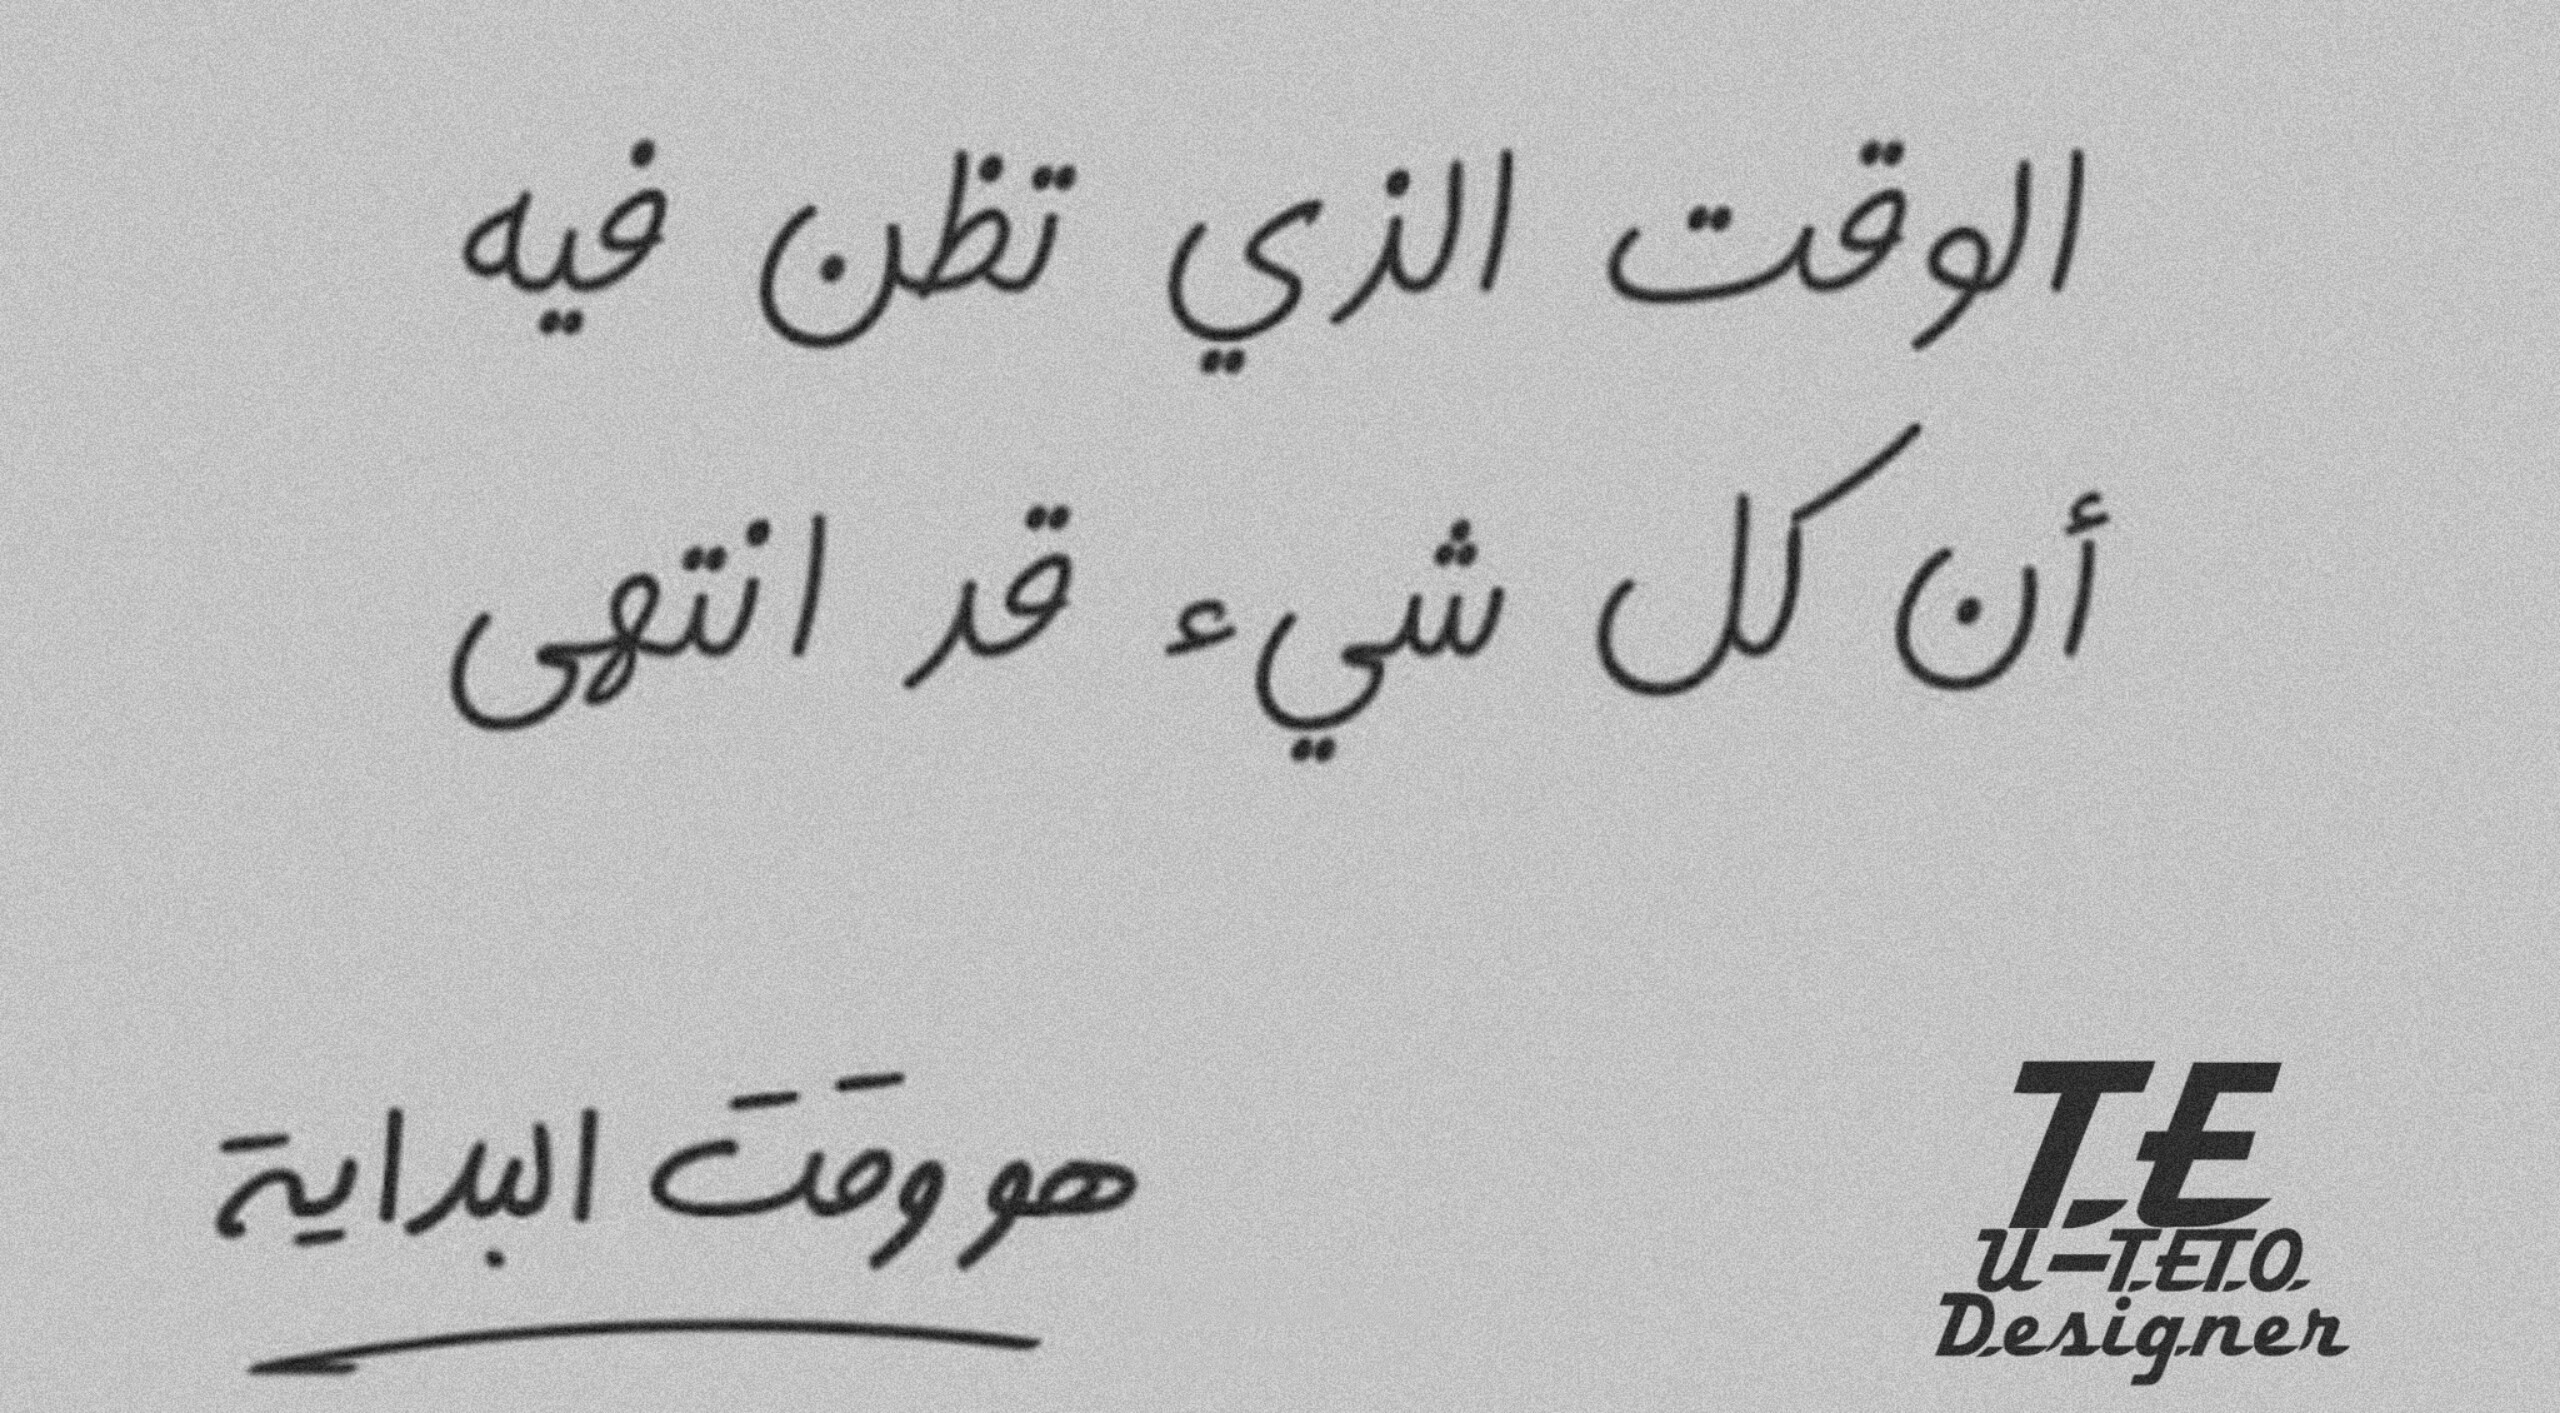 الوقت الذي تظن فيه
أن كل شيء قد انتهى
هو وقت البداية
T.E
U-TETO
Designer